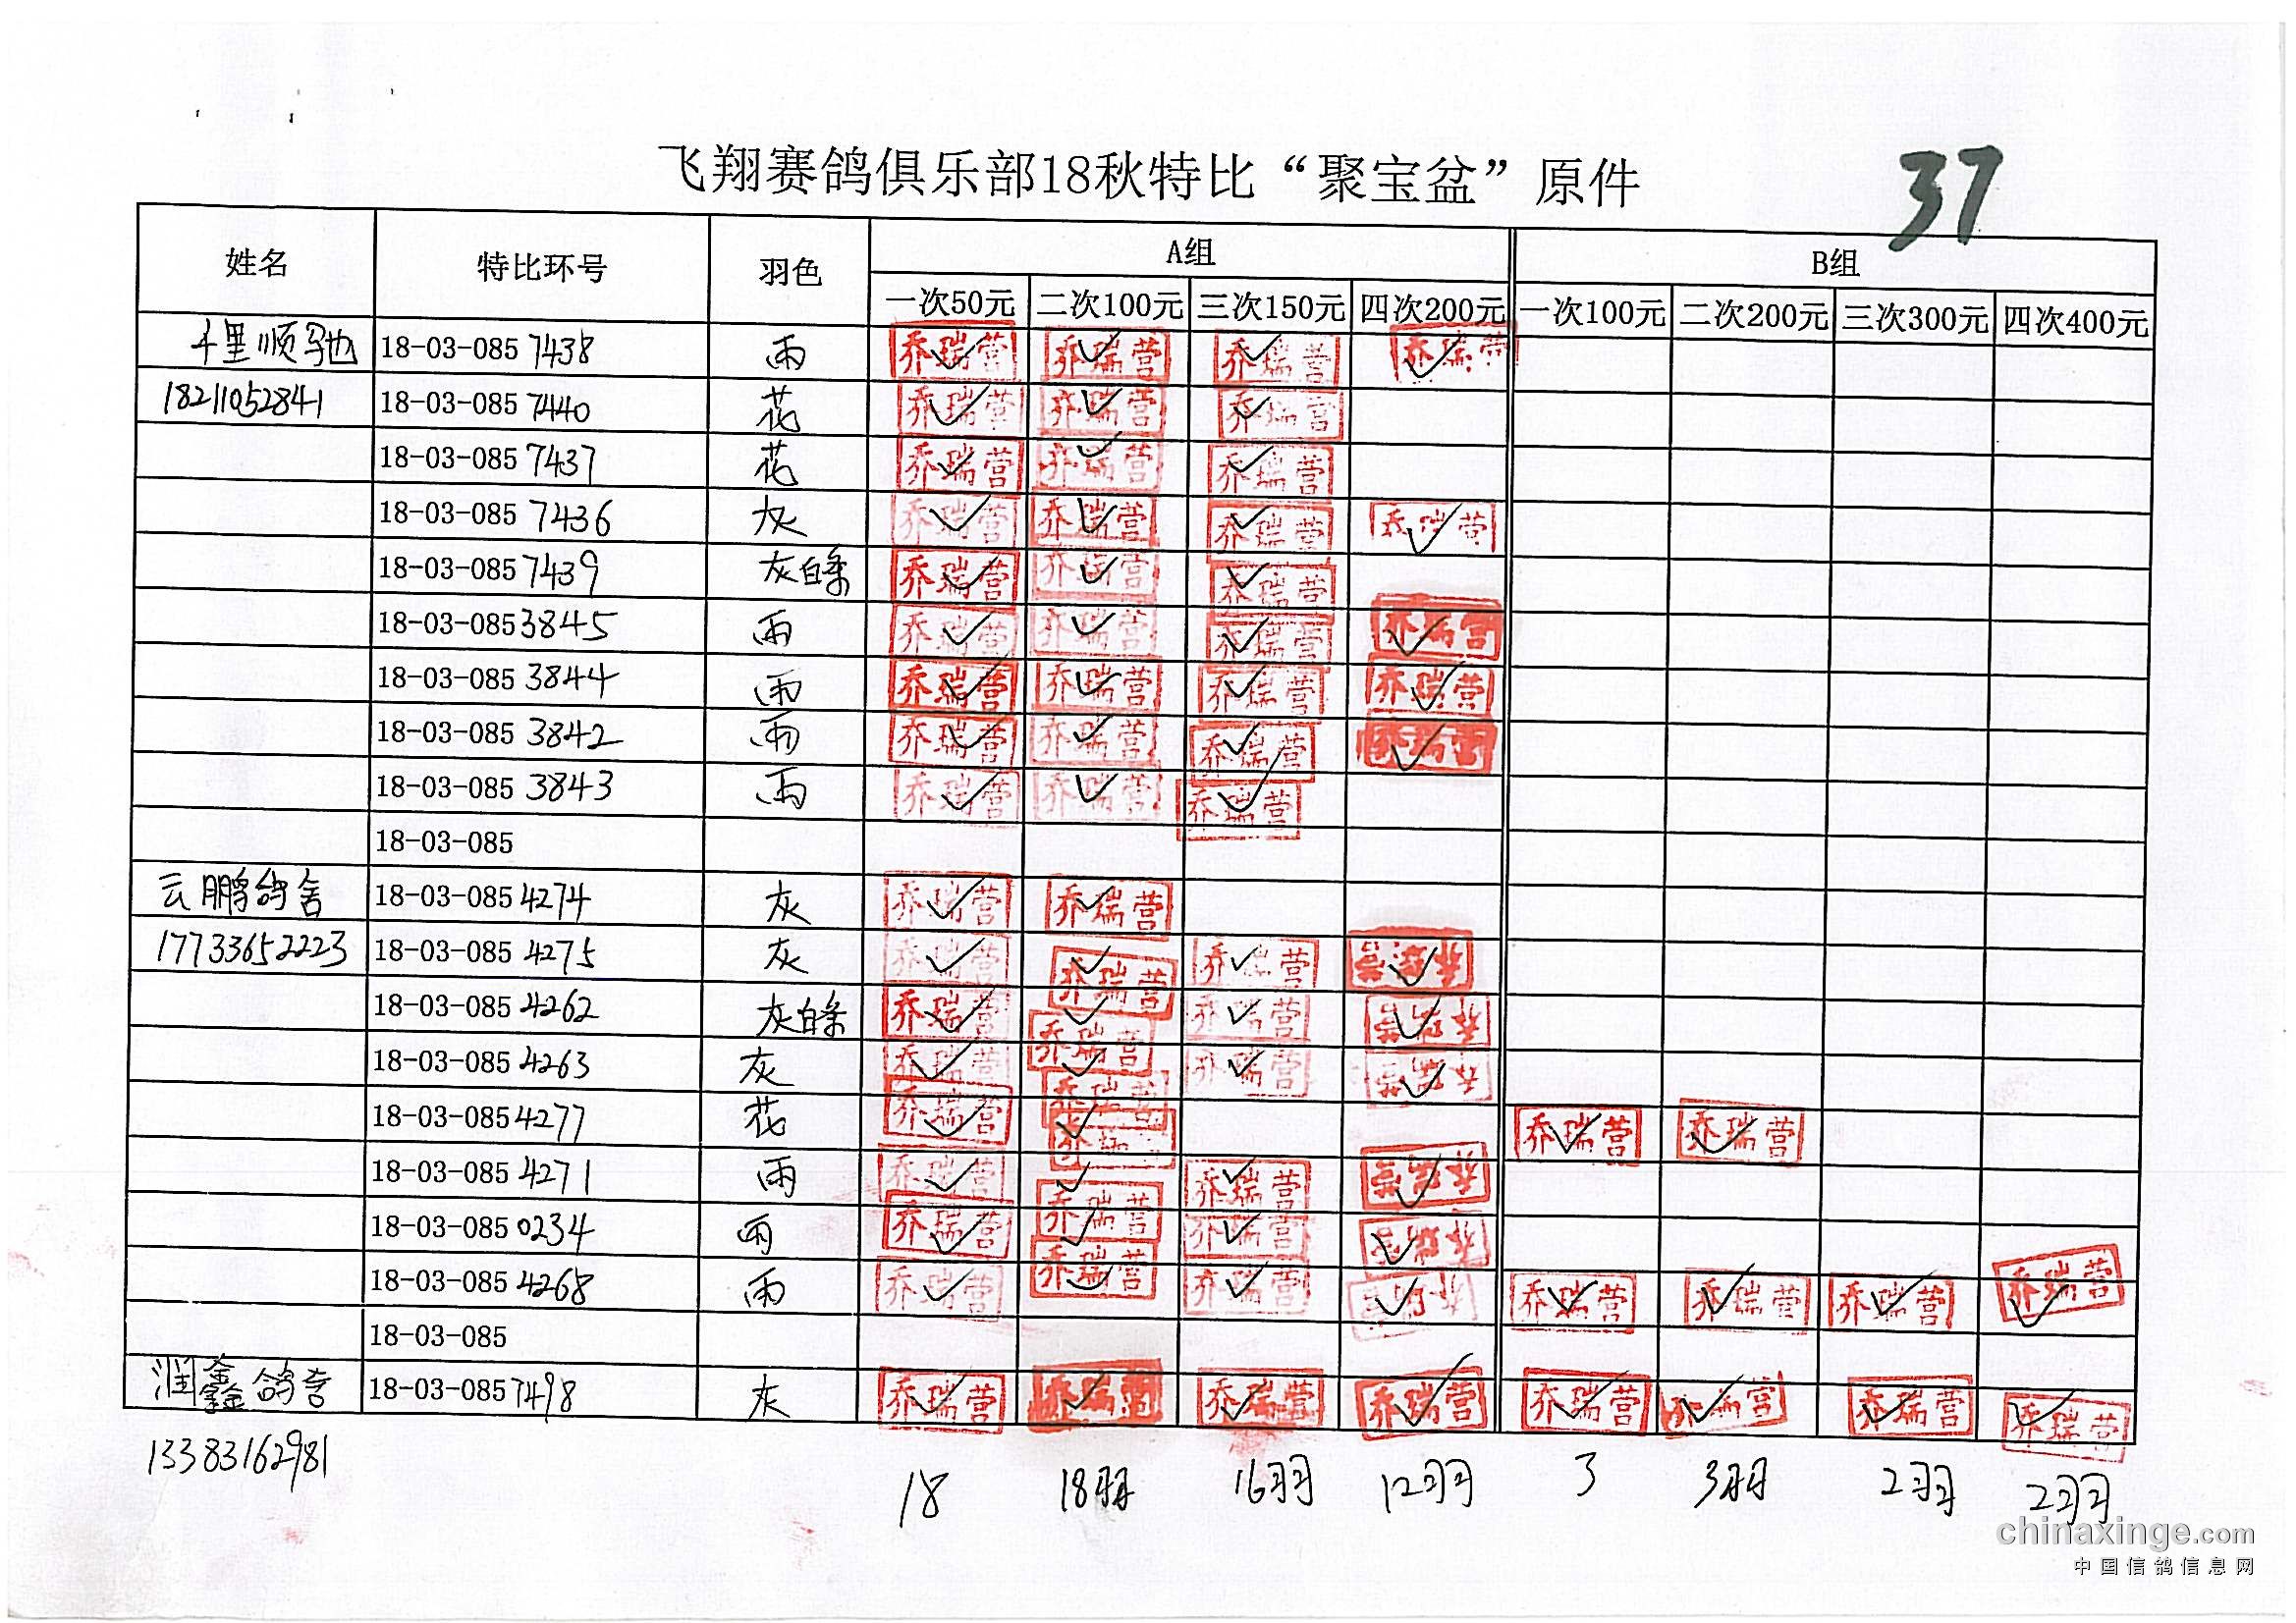 37
飞翔赛鸽俱乐部18秋特比“聚宝盆”原件
姓名 特比环号 羽色 A组 B组
一次50元 二次100元 三次150元 四次200元 一次100元 二次200元 三次300元 四次400元
千里顺驰 18-03-085 7438 雨 乔瑞营 乔瑞营 乔瑞营 乔瑞营
18211052841 18-03-085 7440 花 乔瑞营 乔瑞营 乔瑞营
18-03-085 7437 花 乔瑞营 乔瑞营 乔瑞营
18-03-085 7436 灰 乔瑞营 乔瑞营 乔瑞营 乔瑞营
18-03-085 7439 灰白条 乔瑞营 乔瑞营 乔瑞营
18-03-085 3845 雨 乔瑞营 乔瑞营 乔瑞营 乔瑞营
18-03-085 3844 雨 乔瑞营 乔瑞营 乔瑞营 乔瑞营
18-03-085 3842 雨 乔瑞营 乔瑞营 乔瑞营 乔瑞营
18-03-085 3843 雨 乔瑞营 乔瑞营 乔瑞营
18-03-085
云鹏鸽舍 18-03-085 4274 灰 乔瑞营 乔瑞营
17733652223 18-03-085 4275 灰 乔瑞营 乔瑞营 乔瑞营 乔瑞营
18-03-085 4262 灰白条 乔瑞营 乔瑞营 乔瑞营 乔瑞营
18-03-085 4263 灰 乔瑞营 乔瑞营 乔瑞营 乔瑞营
18-03-085 4277 花 乔瑞营 乔瑞营 乔瑞营 乔瑞营
18-03-085 4271 雨 乔瑞营 乔瑞营 乔瑞营 乔瑞营
18-03-085 0234 雨 乔瑞营 乔瑞营 乔瑞营 乔瑞营
18-03-085 4268 雨 乔瑞营 乔瑞营 乔瑞营 乔瑞营 乔瑞营 乔瑞营 乔瑞营 乔瑞营
18-03-085
润鑫鸽舍 18-03-085 7498 灰 乔瑞营 乔瑞营 乔瑞营 乔瑞营 乔瑞营 乔瑞营 乔瑞营 乔瑞营
13383162981
18 18羽 16羽 12羽 3 3羽 2羽 2羽
chinaxinge.com
中国信鸽信息网